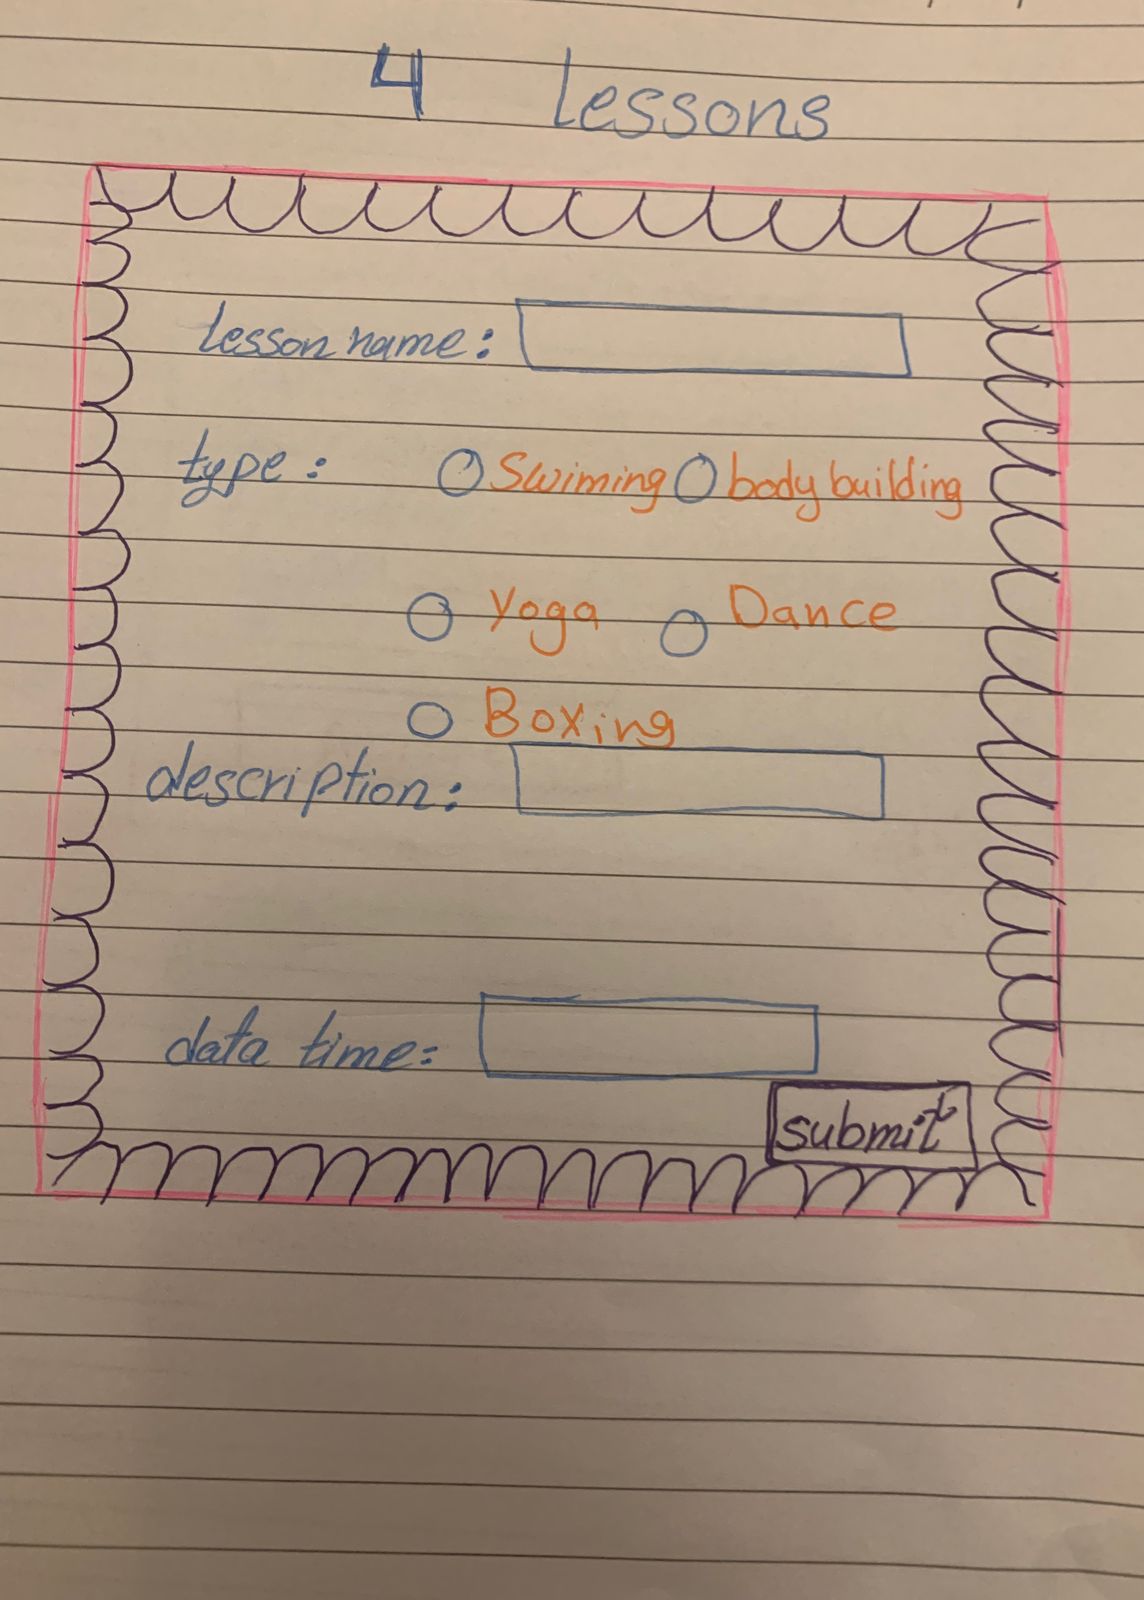 4 Lessons
lesson name:
type: Swiming body building
Yoga Dance
Boxing
description:
data time:
submit